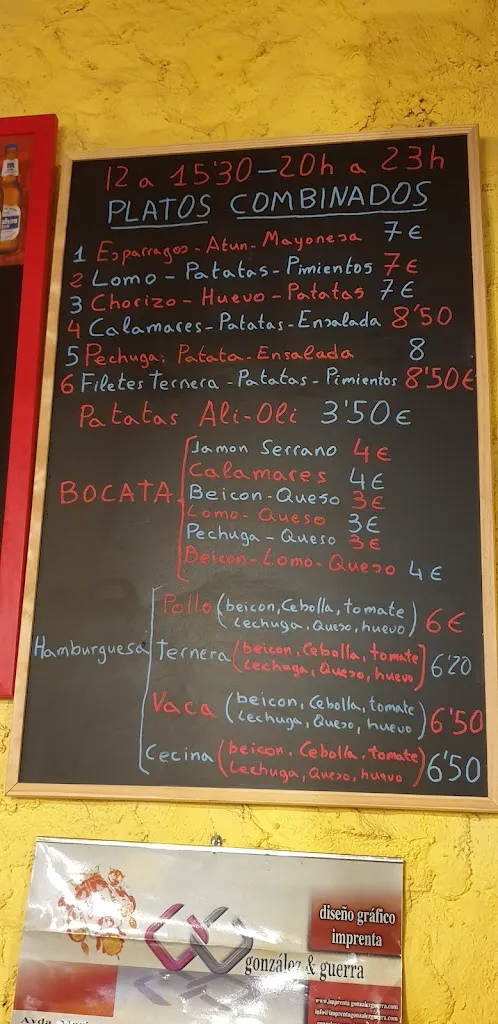 12 a 15'30 - 20h a 23h
PLATOS COMBINADOS
1 Esparragos - Atun - Mayonesa 7€
2 Lomo - Patatas - Pimientos 7€
3 Chorizo - Huevo - Patatas 7€
4 Calamares - Patatas - Ensalada 8'50
5 Pechuga: Patata - Ensalada 8
6 Filetes Ternera - Patatas - Pimientos 8'50€
Patatas Ali-Oli 3'50€
BOCATA
Jamon Serrano 4€
Calamares 4€
Beicon-Queso 3€
Lomo-Queso 3€
Pechuga-Queso 3€
Beicon-Lomo-Queso 4€
Hamburguesa
Pollo (beicon, Cebolla, tomate
Lechuga, Queso, huevo) 6€
Ternera (beicon, Cebolla, tomate
Lechuga, Queso, huevo) 6'20
Vaca (beicon, Cebolla, tomate
Lechuga, Queso, huevo) 6'50
Cecina (beicon, Cebolla, tomate
Lechuga, Queso, huevo) 6'50
diseño gráfico
imprenta
gonzález & guerra
www.imprentagonzalezguerra.com
info@imprentagonzalezguerra.com